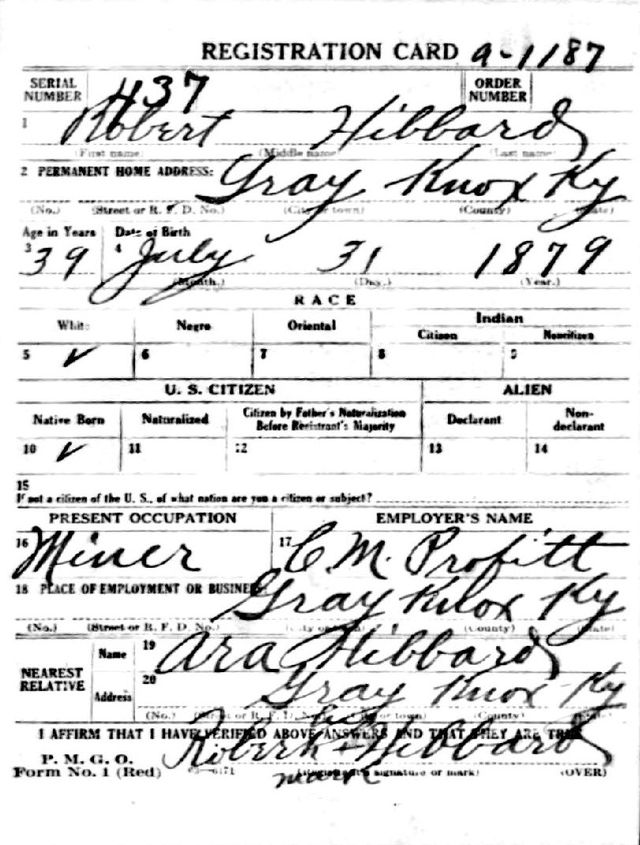 REGISTRATION CARD 9-1187
SERIAL NUMBER 437 ORDER NUMBER
1 Robert Hibbard
(First name) (Middle name) (Last name)
2 PERMANENT HOME ADDRESS: Gray Knox Ky
(No.) (Street or R. F. D. No.) (City or town) (County) (State)
Age in Years Date of Birth
3 39 4 July 31 1879
(Month.) (Day.) (Year.)
RACE
White Negro Oriental Indian
Citizen Noncitizen
5 ✓ 6 7 8 9
U. S. CITIZEN ALIEN
Native Born Naturalized Citizen by Father's Naturalization Before Registrant's Majority Declarant Non-declarant
10 ✓ 11 12 13 14
15
If not a citizen of the U. S., of what nation are you a citizen or subject?
PRESENT OCCUPATION EMPLOYER'S NAME
16 Miner 17 C. M. Profitt
18 PLACE OF EMPLOYMENT OR BUSINESS: Gray Knox Ky
(No.) (Street or R. F. D. No.) (City or town) (County) (State)
NEAREST RELATIVE Name 19 Ara Hibbard
Address 20 Gray Knox Ky
(No.) (Street or R. F. D. No.) (City or town) (County) (State)
I AFFIRM THAT I HAVE VERIFIED ABOVE ANSWERS AND THAT THEY ARE TRUE
his
P. M. G. O. Robert + Hibbard
Form No. 1 (Red) mark (Registrant's signature or mark) (OVER)